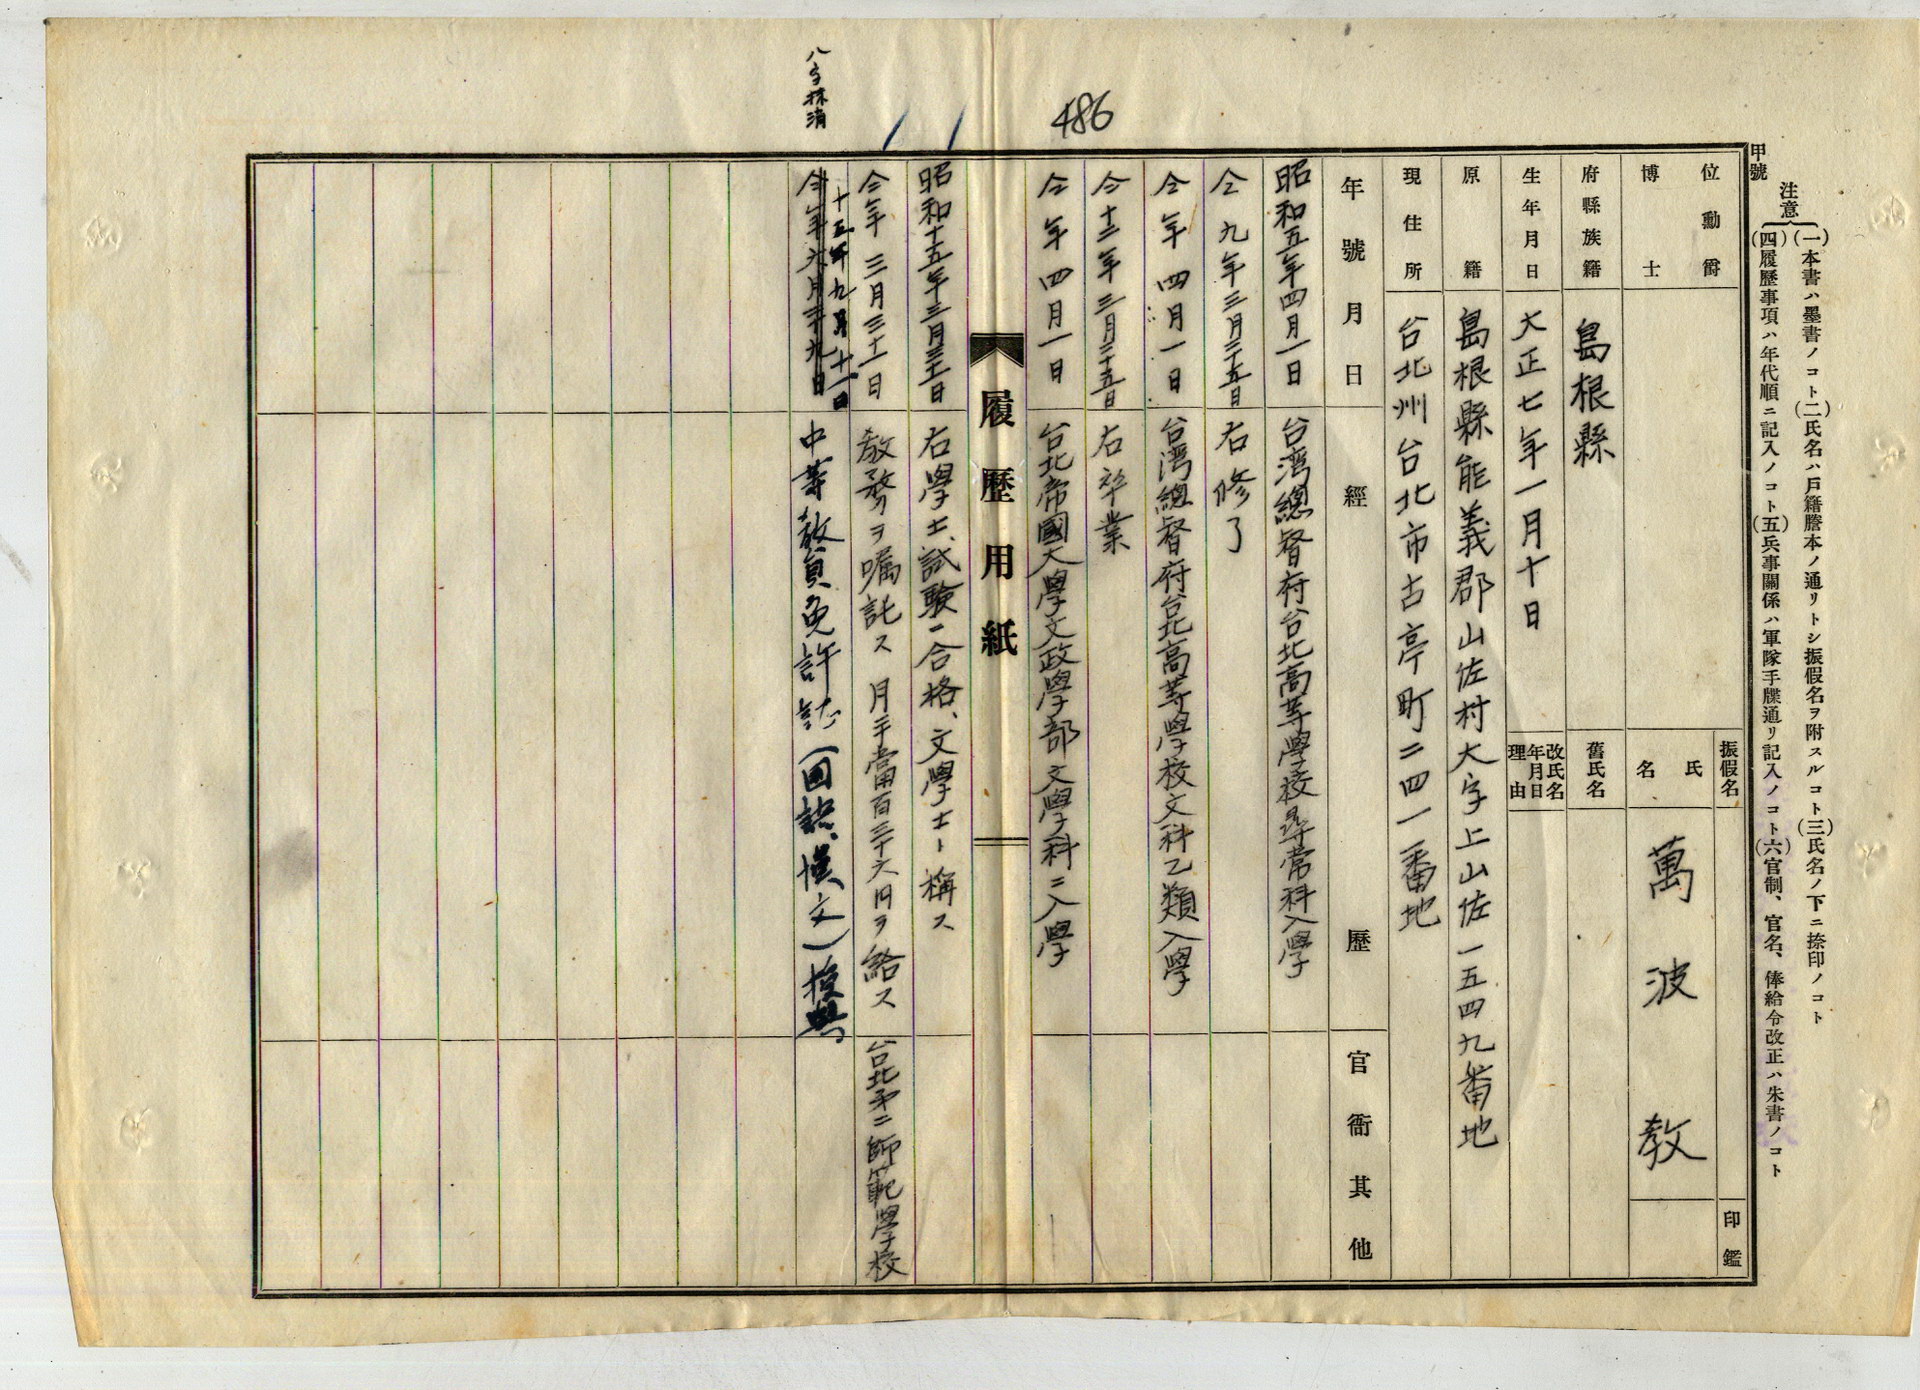 486
甲號
注意
(一)本書ハ墨書ノコト(二)氏名ハ戶籍謄本ノ通リトシ振假名ヲ附スルコト(三)氏名ノ下ニ捺印ノコト
(四)履歷事項ハ年代順ニ記入ノコト(五)兵事關係ハ軍隊手牒通リ記入ノコト(六)官制、官名、俸給令改正ハ朱書ノコト
位勳爵
博士
振假名
氏名
萬波教
印鑑
府縣族籍
島根縣
舊氏名
生年月日
大正七年一月十日
改氏名年月日理由
原籍
島根縣能義郡山佐村大字上山佐一五四九番地
現住所
台北州台北市古亭町二四一番地
年號月日
經歷
官衙其他
昭和五年四月一日
台湾總督府台北高等學校尋常科入學
仝九年三月二十五日
右修了
仝年四月一日
台湾總督府台北高等學校文科乙類入學
仝十二年三月二十五日
右卒業
仝年四月一日
台北帝國大學文政學部文學科ニ入學
履歷用紙
昭和十五年三月三十日
右學士試驗ニ合格、文學士ト稱ス
仝年三月三十一日
教務ヲ嘱託ス 月手當百三十六円ヲ給ス
台北第二師範學校
八字抹消
仝年六月二十九日
十五年九月十一日
中等教員免許状(国語、漢文)授與